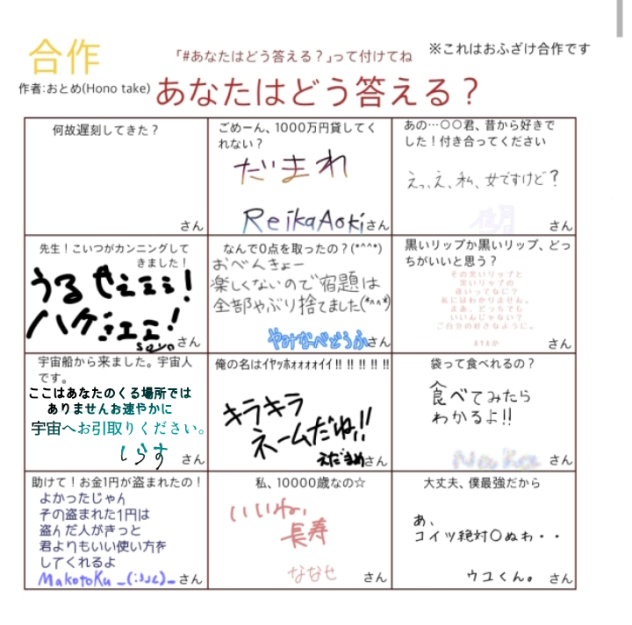 合作
「#あなたはどう答える?」って付けてね
※これはおふざけ合作です
作者:おとめ(Hono take)
あなたはどう答える?
何故遅刻してきた?
さん
ごめーん、1000万円貸してく
れない?
だまれ
ReikaAokiさん
あの…○○君、昔から好きで
した!付き合ってください
えっ、え、私、女ですけど?
さん
先生!こいつがカンニングして
きました!
うるせぇぇぇ!
ハゲェェェ!
さん
なんで0点を取ったの?(*^^*)
おべんきょー
楽しくないので宿題は
全部やぶり捨てました(*^^*)
やみなべどうふさん
黒いリップか黒いリップ、どっ
ちがいいと思う?
その黒いリップと
黒いリップの
違いってなに?
私にはわかりません。
まあ、どっちでも
いいんじゃない?
ご自分の好きなように。
さん
宇宙船から来ました。宇宙人
です。
ここはあなたのくる場所では
ありませんお速やかに
宇宙へお引取りください。
しらす さん
俺の名はイヤッホォォォォイイ!!!!!!
キラキラ
ネームだね!!
えだまめさん
袋って食べれるの?
食べてみたら
わかるよ!!
さん
助けて!お金1円が盗まれたの!
よかったじゃん
その盗まれた1円は
盗んだ人がきっと
君よりもいい使い方を
してくれるよ
さん
私、10000歳なの☆
いいね、
長寿
ななせ さん
大丈夫、僕最強だから
あ、
コイツ絶対〇ぬわ・・
ウユくん。さん